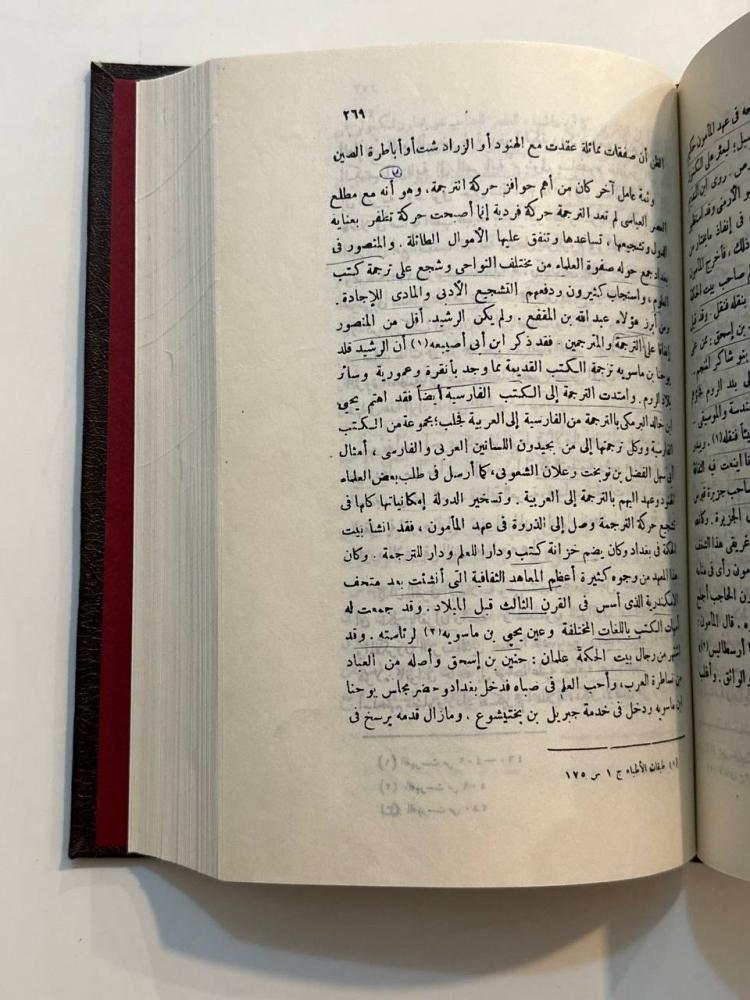 ٢٦٩
الظن أن صفقات مماثلة عقدت مع الهنود أو الزرادشت أو أباطرة الصين
وثمة عامل آخر كان من أهم حوافز حركة الترجمة، وهو أنه مع مطلع
العصر العباسى لم تعد الترجمة حركة فردية إنما أصبحت حركة تظفر بعناية
الدول وتشجيعها، تساعدها وتنفق عليها الأموال الطائلة. والمنصور فى
بغداد جمع حوله صفوة العلماء من مختلف النواحى وشجع على ترجمة كتب
العلوم، واستجاب كثيرون ودفعهم التشجيع الأدبى والمادى للإجادة.
ومن أبرز هؤلاء عبد الله بن المقفع. ولم يكن الرشيد. أقل من المنصور
إنفاقا على الترجمة والمترجمين. فقد ذكر ابن أبى أصيبعه (١) أن الرشيد قلد
يوحنا بن ماسويه ترجمة الكتب القديمة بما وجد بأنقرة وعمورية وسائر
بلاد الروم. وامتدت الترجمة إلى الكتب الفارسية أيضاً فقد اهتم يحيى
ابن خالد البرمكى بالترجمة من الفارسية إلى العربية فجلب؛ مجموعة من الكتب
الفارسية ووكل ترجمتها إلى من يجيدون اللسانين العربى والفارسى، أمثال
أبى سهل الفضل بن نوبخت وعلان الشعوبى، كما أرسل فى طلب بعض العلماء
الهنود وعهد اليهم بالترجمة إلى العربية. وتسخير الدولة إمكانياتها كلها فى
تشجيع حركة الترجمة وصل إلى الذروة فى عهد المأمون، فقد انشأ بيت
الحكمة فى بغداد وكان يضم خزانة كتب ودارا للعلم ودار للترجمة. وكان
هذا المعهد من وجوه كثيرة أعظم المعاهد الثقافية التى أنشئت بعد متحف
الاسكندرية الذى أسس فى القرن الثالث قبل الميلاد. وقد جمعت له
أمهات الكتب باللغات المختلفة وعين يحيى بن ماسويه (٢) لرئاسته. وقد
اشتهر من رجال بيت الحكمة علمان: حنين بن إسحق وأصله من العباد
من نساطرة العرب، وأحب العلم فى صباه فدخل بغداد وحضر مجلس يوحنا
ابن ماسويه ودخل فى خدمة جبريل بن بختيشوع. ومازال قدمه يرسخ فى
(١) طبقات الأطباء ج ١ س ١٧٥